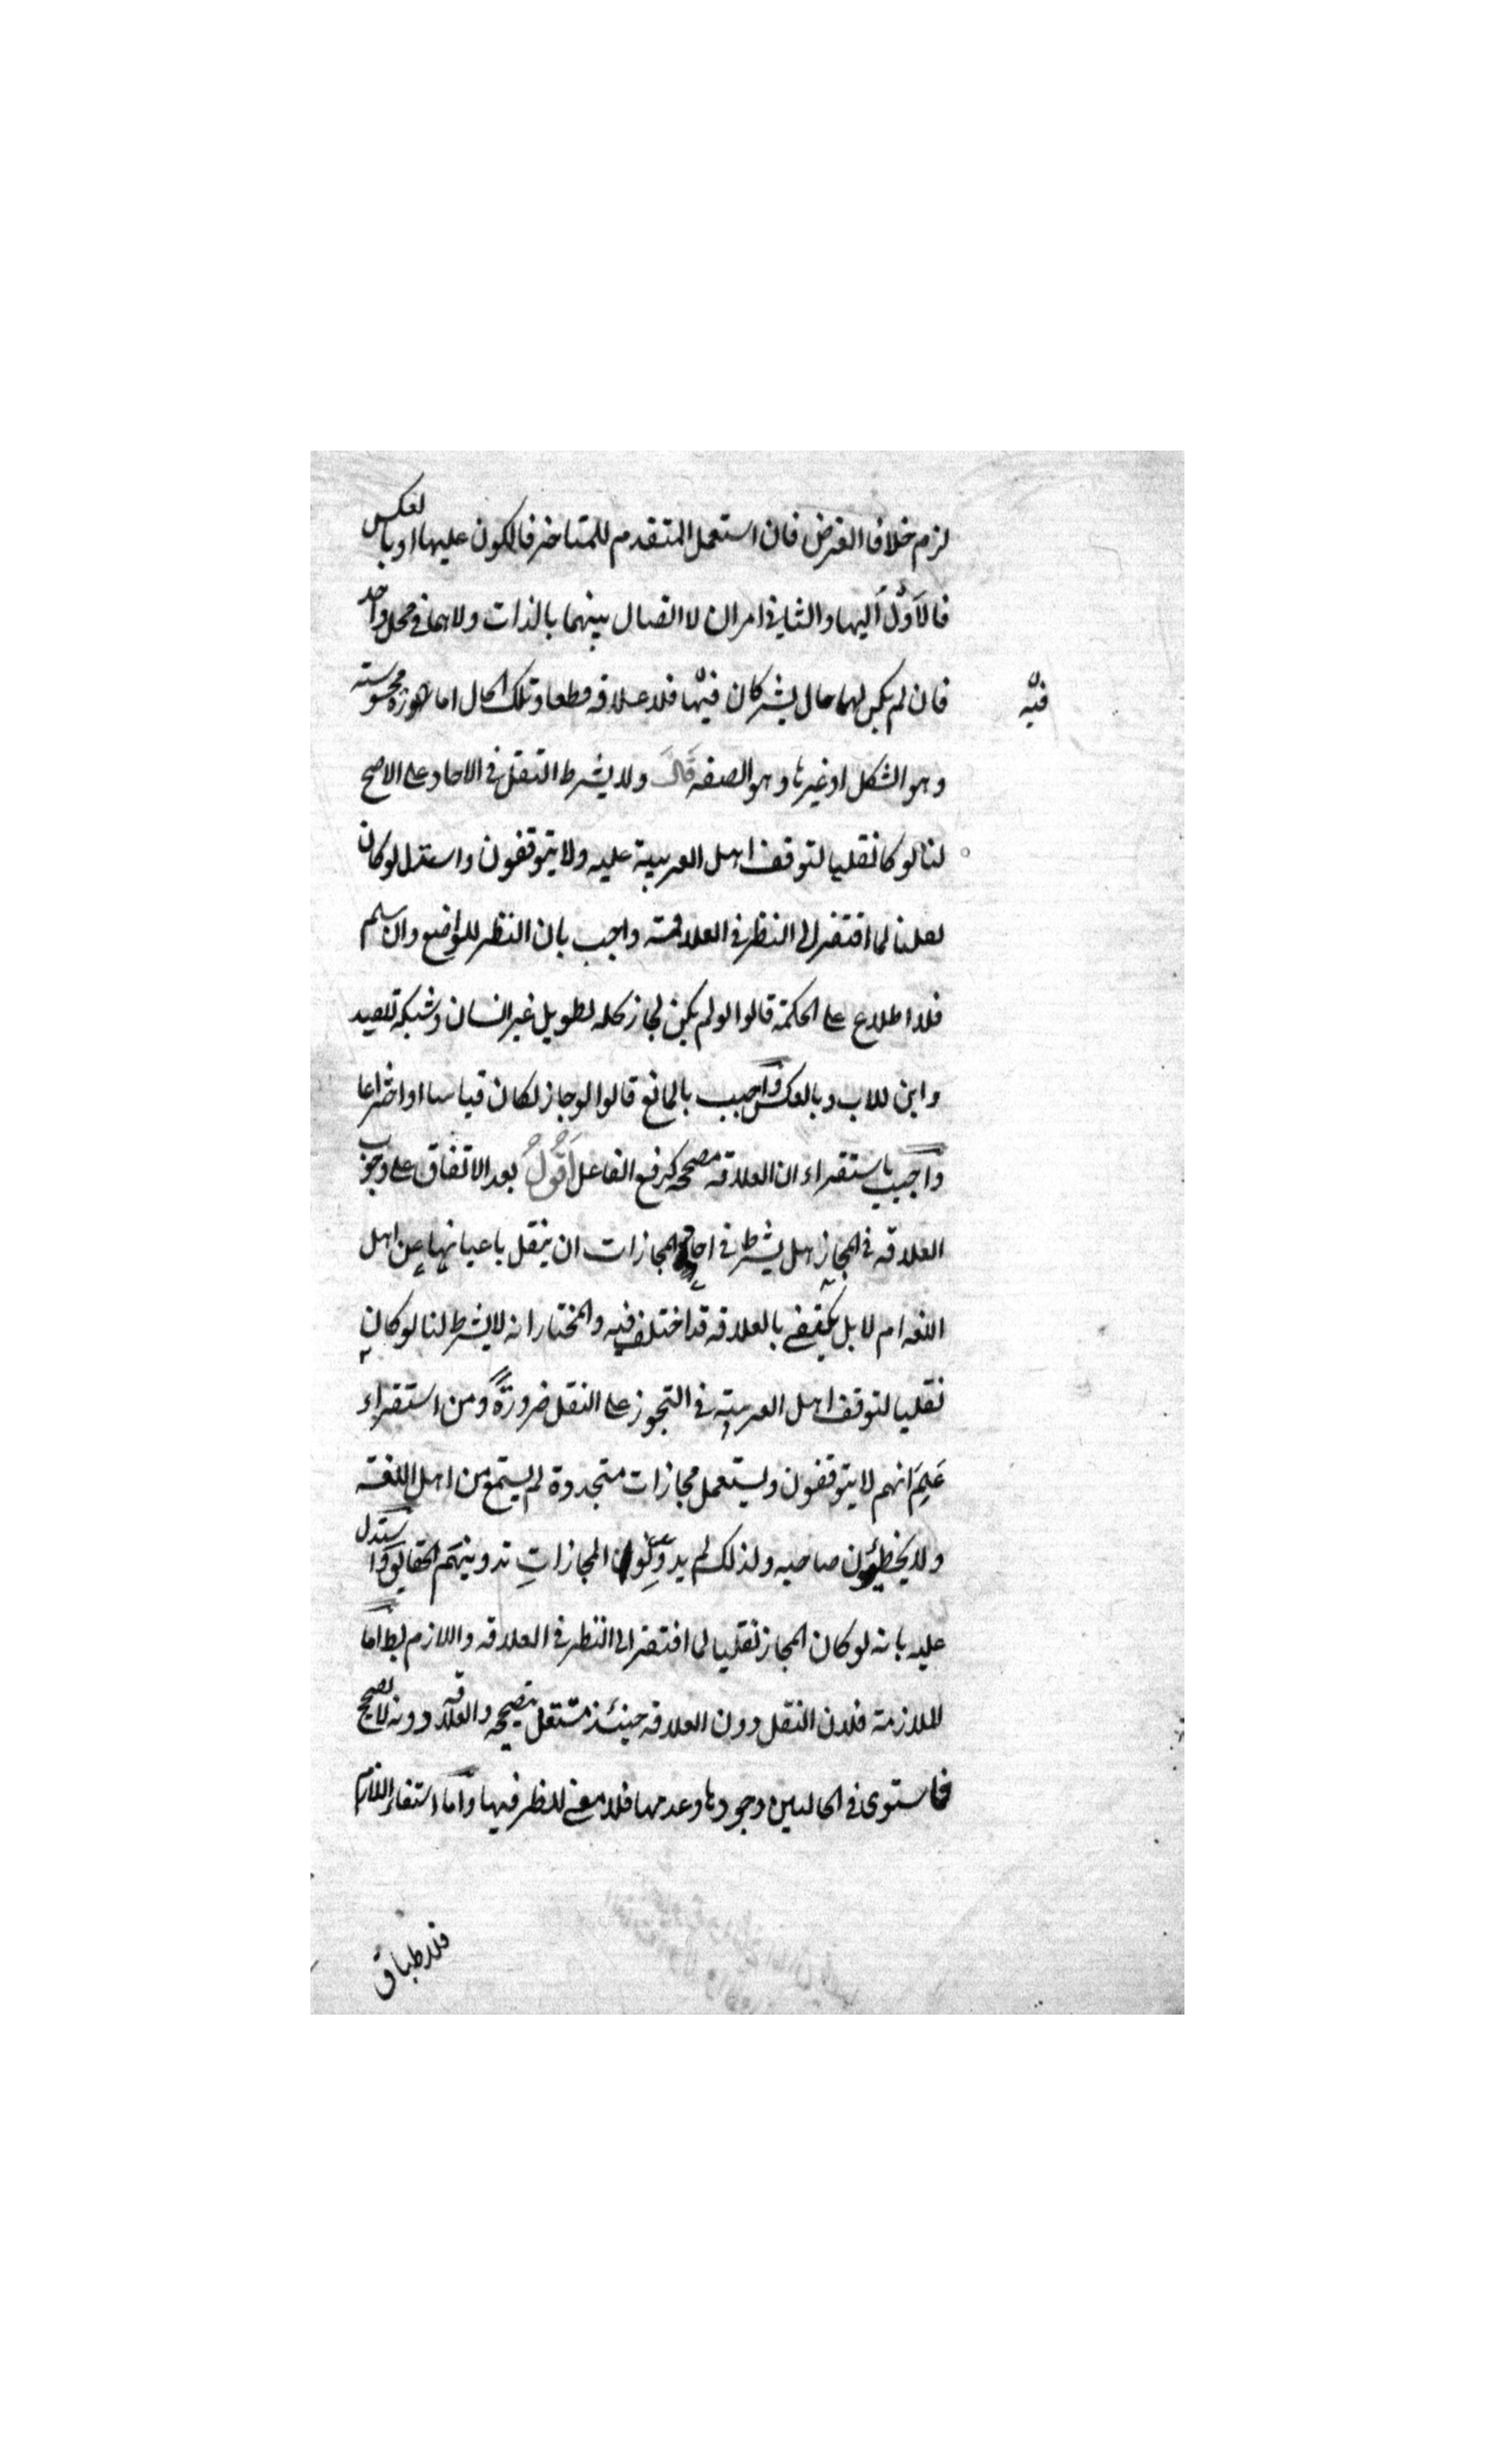 لزم خلاف الفرض فان استعمل المتقدم للمتاخر فالكون عليها او بالعكس
فالاَوْلُ اليها والثاني امران لا اتصال بينهما بالذات ولا هما في محل واحد
فان لم يكن لهما حال يشتركان فيها فلا علاقه قطعا وتلك الحال اما صورة محسوسة
فيه
وهو الشكل او غيرها وهو الصفه قال ولا يشترط النقل في الاحاد على الاصح
لنا لو كان نقليا لتوقف اهل العربية عليه ولا يتوقفون واستدل لو كان
نقليا لما افتقر الى النظر في العلاقة واجيب بان النظر للواضع وان سلم
فلاطلاع على الحكمة قالوا لو لم يكن لجاز نخله لطويل غير انسان وشبكة للصيد
وابن للاب وبالعكس واجيب بالمانع قالوا لو جاز لكان قياسا او اختراعا
واجيب باستقراء ان العلاقه مصححه كرفع الفاعل اَقُولُ بعد الاتفاق على وجوب
العلاقه في المجاز هل يشترط في احاد المجازات ان ينقل باعيانها عن اهل
اللغه ام لا بل يكتفى بالعلاقه قد اختلف فيه والمختار انه لا يشترط لنا لو كان
نقليا لتوقف اهل العربية في التجوز على النقل ضرورةً ومن استقراء
عَلِمَ انهم لا يتوقفون ويستعمل مجازات متجددة لم يستمع من اهل اللغة
ولا يخطئون صاحبه ولذلك لم يدونوا المجازاتِ تدوينهم الحقايق واستدل
عليه بانه لو كان المجاز نقليا لما افتقر الى النظر في العلاقه واللازم بط اما
الملازمة فلان النقل دون العلاقه حينئذ مستقل بتصحيحه والعلاقه دونه لا تصحح
فاستوى في الحالين وجودها وعدمها فلا معنى للنظر فيها واما انتفاء اللازم
فلاطباق